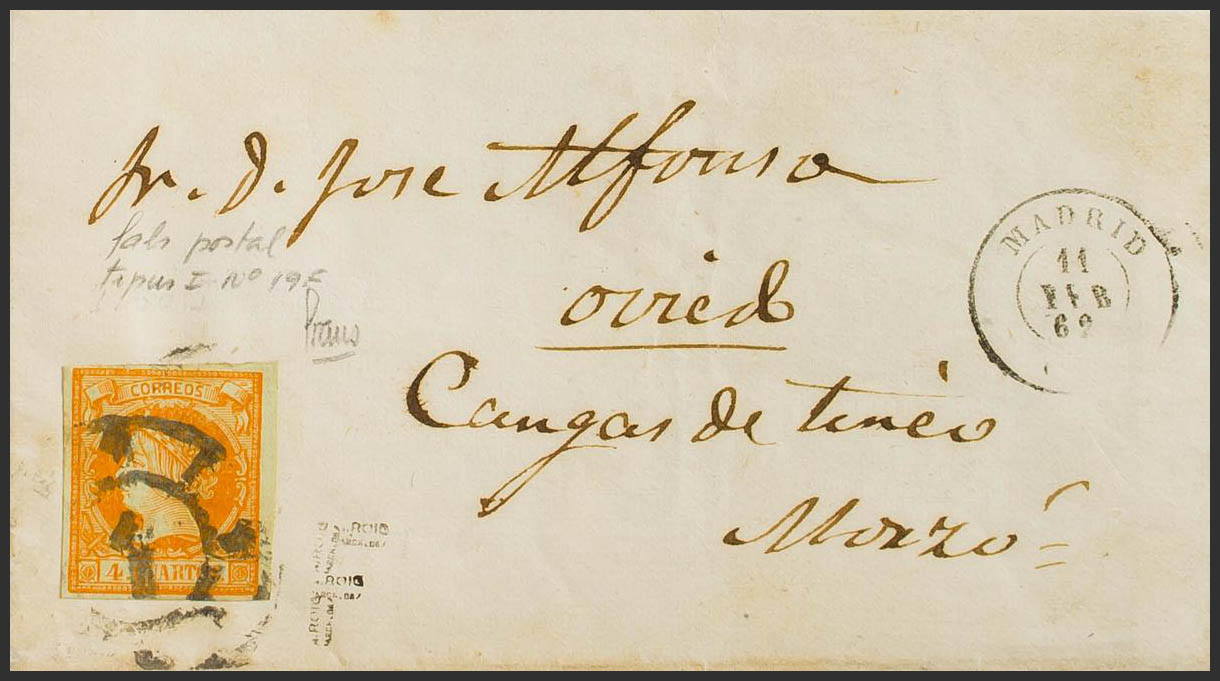 Sr. D. Jose Alfonso
fals postal
tipus I Nº 19F
oviedo
Cangas de tineo
Morzó
MADRID
11
FEB
62
CORREOS
4 CUARTOS
A.ROIG
A.ROIG
A.ROIG